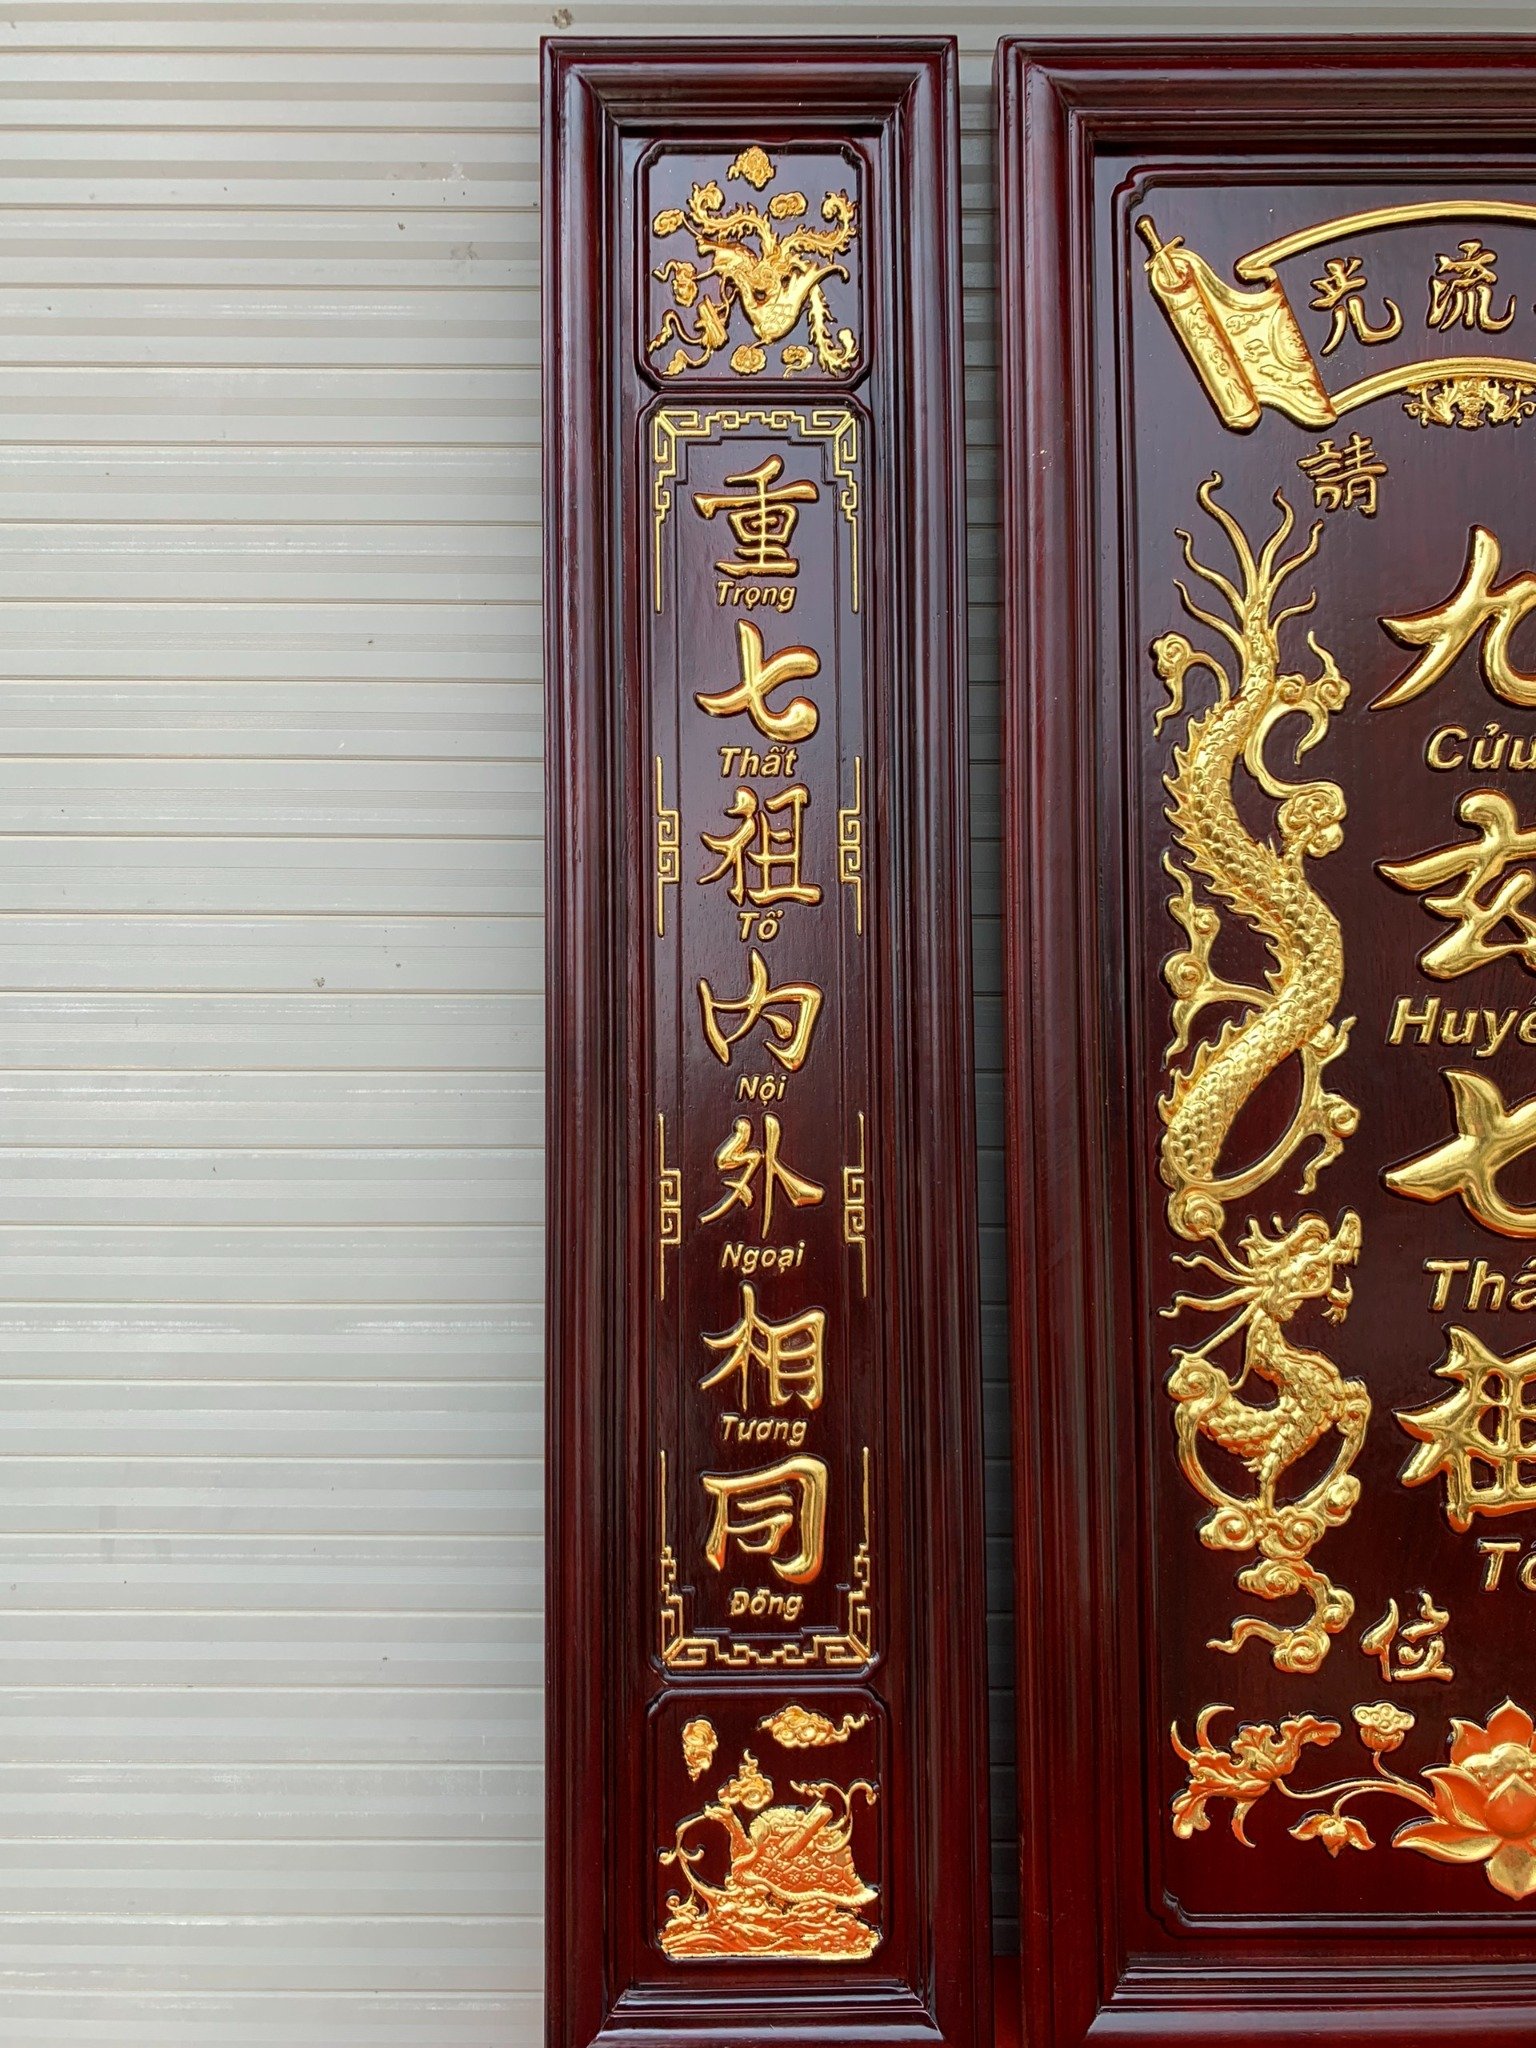 重
Trọng
七
Thất
祖
Tổ
內
Nội
外
Ngoại
相
Tương
同
Đồng
光 流
請
九
Cửu
玄
七
祖
位